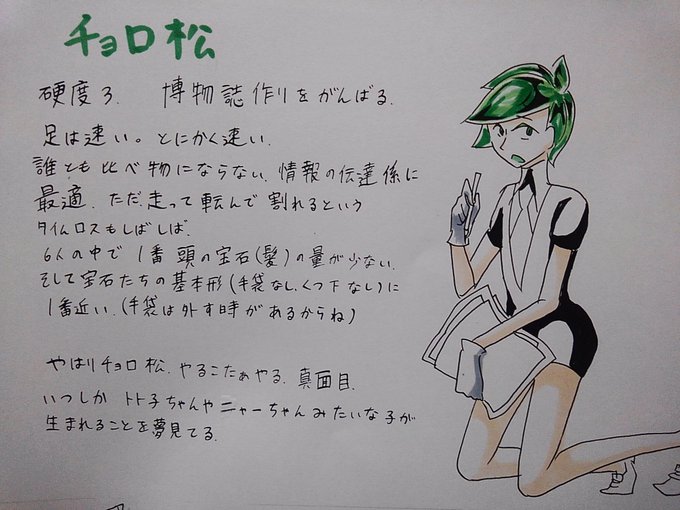 チョロ松
硬度3. 博物誌作りをがんばる.
足は速い。とにかく速い.
誰とも比べ物にならない. 情報の伝達係に
最適. ただ走って転んで割れるという
タイムロスもしばしば.
6人の中で1番頭の宝石(髪)の量が少ない.
そして宝石たちの基本形(手袋なし、くつ下なし)に
1番近い. (手袋は外す時があるからね)
やはりチョロ松. やるこたぁやる. 真面目.
いつしか トト子ちゃんやニャーちゃんみたいな子が
生まれることを夢見てる.